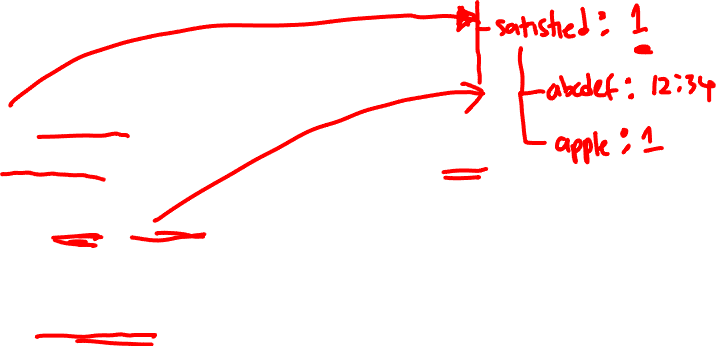 satisfied: 1
abcdef: 12:34
apple: 1